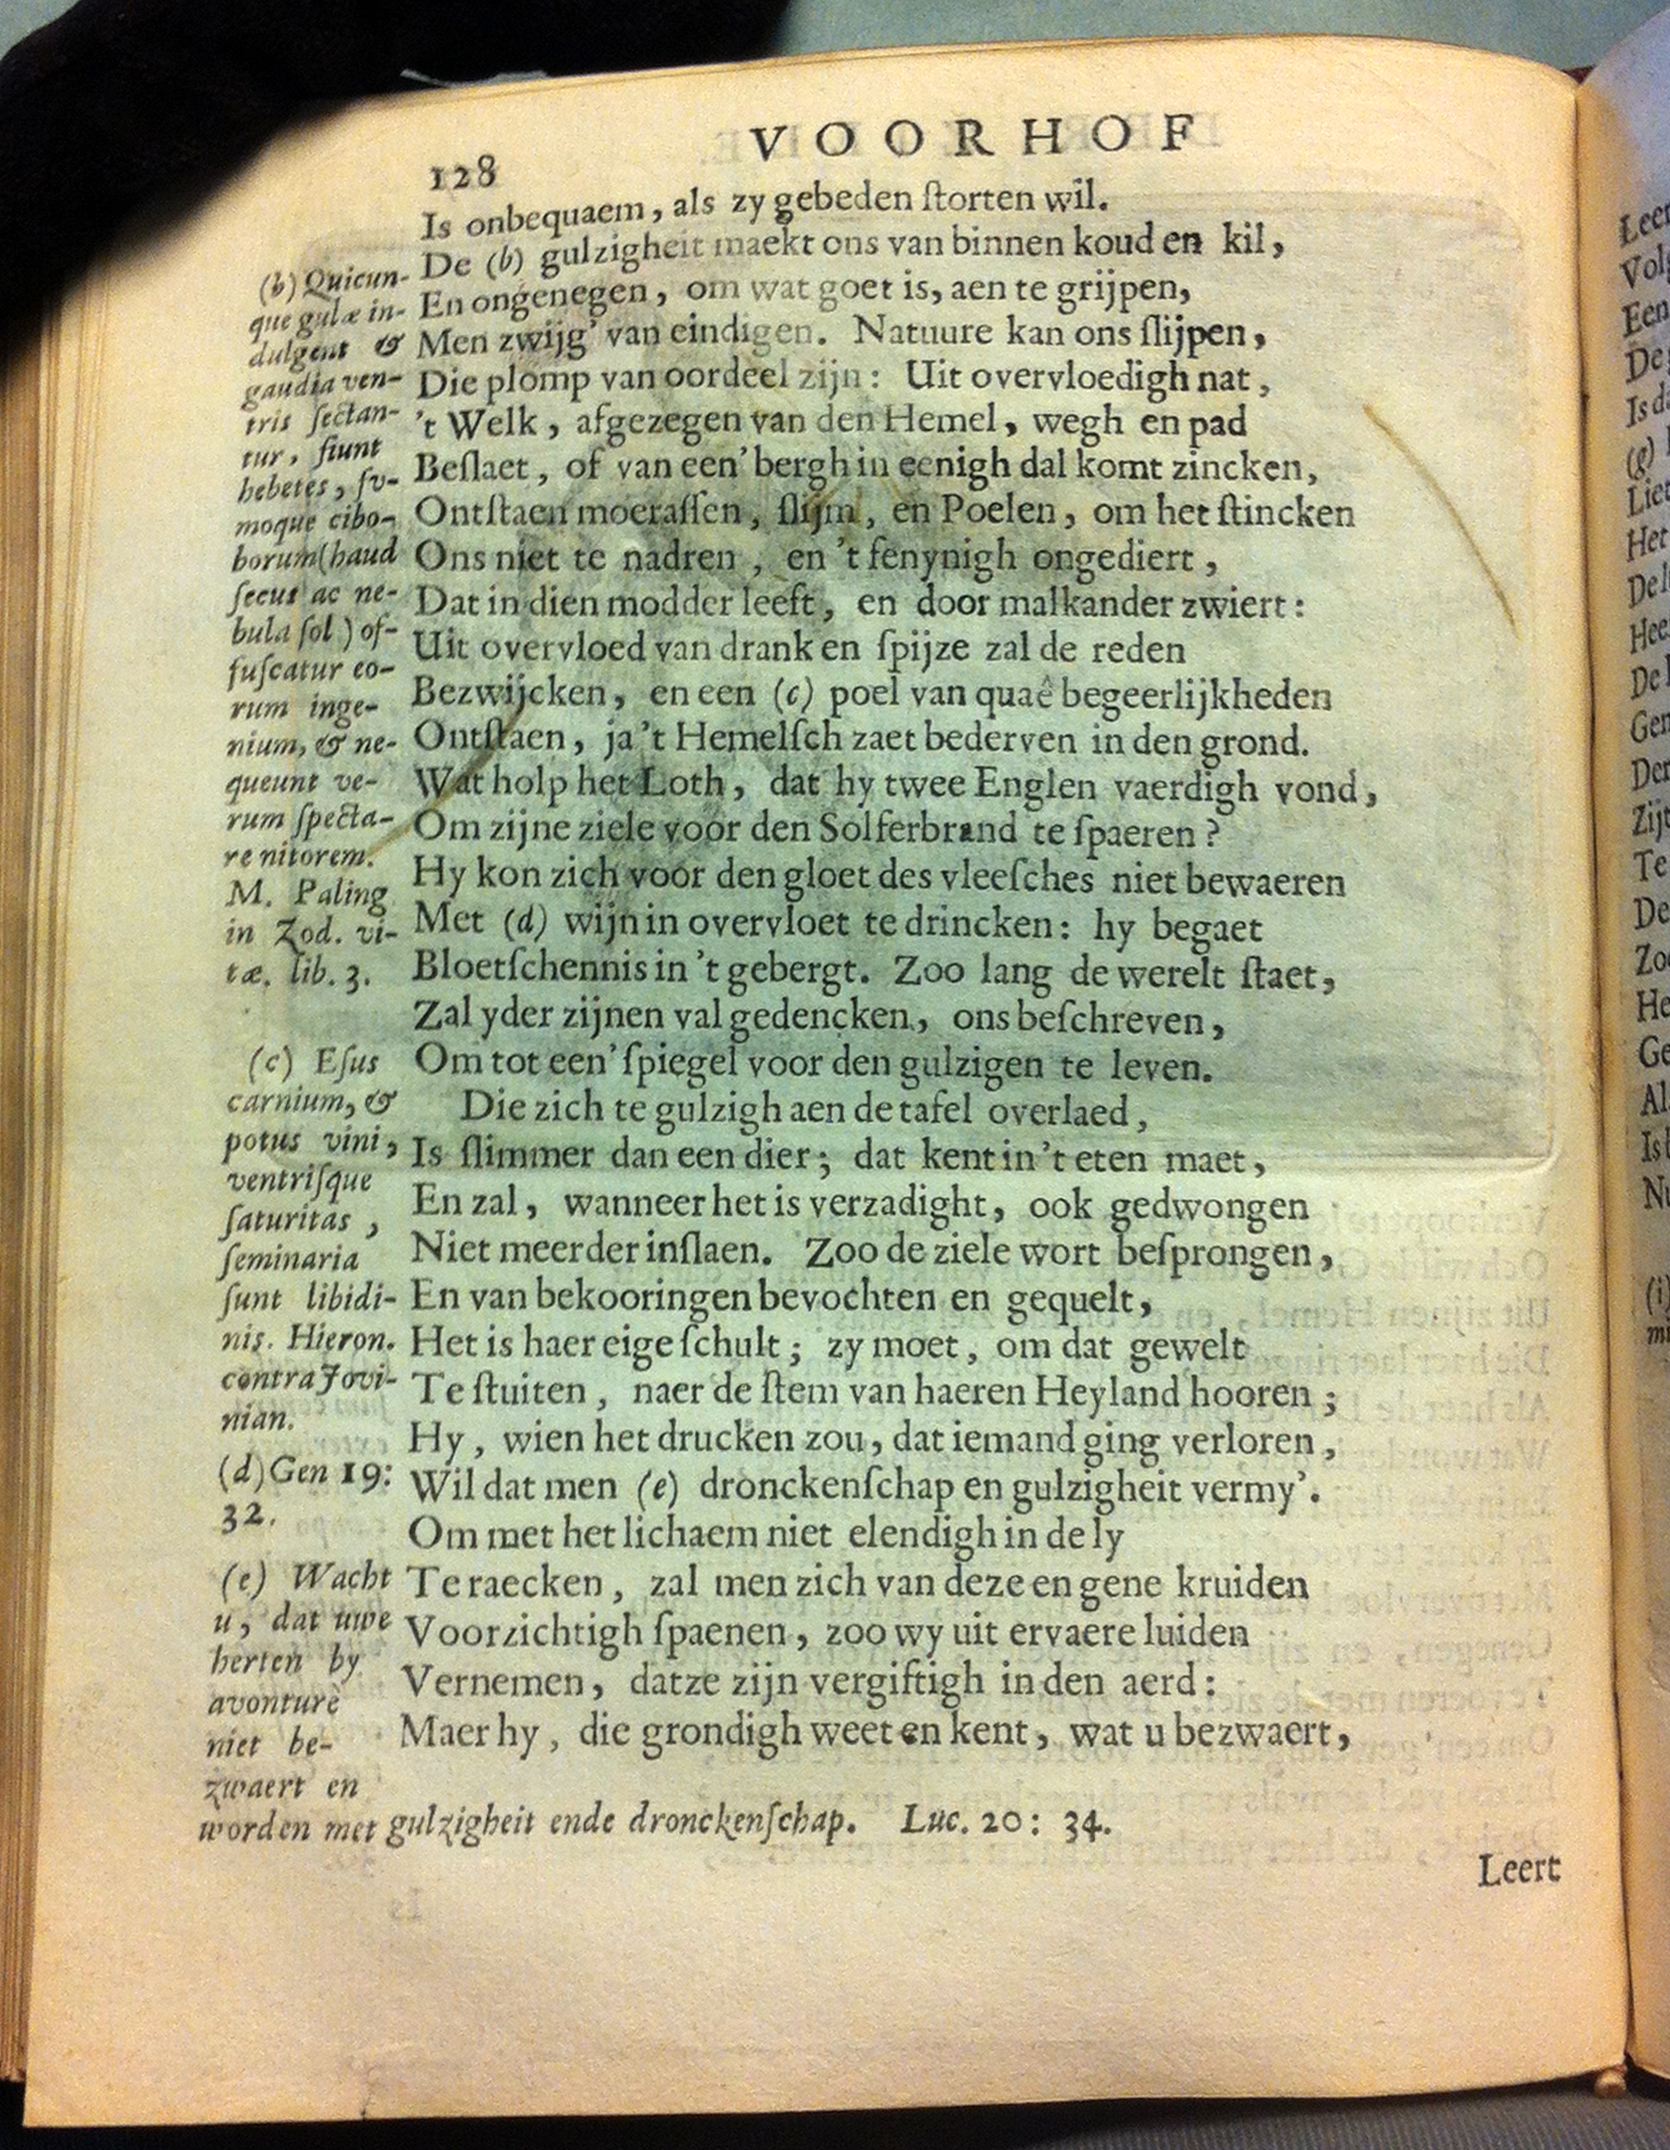 VOORHOF
128
Is onbequaem, als zy gebeden ſtorten wil.
De (b) gulzigheit maekt ons van binnen koud en kil,
En ongenegen, om wat goet is, aen te grijpen,
Men zwijg' van eindigen. Natuure kan ons ſlijpen,
Die plomp van oordeel zijn: Uit overvloedigh nat,
't Welk, afgezegen van den Hemel, wegh en pad
Beſlaet, of van een' bergh in eenigh dal komt zincken,
Ontſtaen moeraſſen, ſlijm, en Poelen, om het ſtincken
Ons niet te nadren, en 't fenynigh ongediert,
Dat in dien modder leeft, en door malkander zwiert:
Uit overvloed van drank en ſpijze zal de reden
Bezwijcken, en een (c) poel van quaê begeerlijkheden
Ontſtaen, ja 't Hemelſch zaet bederven in den grond.
Wat holp het Loth, dat hy twee Englen vaerdigh vond,
Om zijne ziele voor den Solferbrand te ſpaeren?
Hy kon zich voor den gloet des vleeſches niet bewaeren
Met (d) wijn in overvloet te drincken: hy begaet
Bloetſchennis in 't gebergt. Zoo lang de werelt ſtaet,
Zal yder zijnen val gedencken, ons beſchreven,
Om tot een' ſpiegel voor den gulzigen te leven.
Die zich te gulzigh aen de tafel overlaed,
Is ſlimmer dan een dier; dat kent in 't eten maet,
En zal, wanneer het is verzadight, ook gedwongen
Niet meerder inſlaen. Zoo de ziele wort beſprongen,
En van bekooringen bevochten en gequelt,
Het is haer eige ſchult; zy moet, om dat gewelt
Te ſtuiten, naer de ſtem van haeren Heyland hooren;
Hy, wien het drucken zou, dat iemand ging verloren,
Wil dat men (e) dronckenſchap en gulzigheit vermy'.
Om met het lichaem niet elendigh in de ly
Te raecken, zal men zich van deze en gene kruiden
Voorzichtigh ſpaenen, zoo wy uit ervaere luiden
Vernemen, datze zijn vergiftigh in den aerd:
Maer hy, die grondigh weet en kent, wat u bezwaert,
(b) Quicun-
que gulæ in-
dulgent &
gaudia ven-
tris ſectan-
tur, fiunt
hebetes, ſu-
moque cibo-
borum (haud
ſecus ac ne-
bula ſol) of-
fuſcatur eo-
rum inge-
nium, & ne-
queunt ve-
rum ſpecta-
re nitorem.
M. Paling
in Zod. vi-
tæ. lib. 3.
(c) Eſus
carnium, &
potus vini,
ventriſque
ſaturitas,
ſeminaria
ſunt libidi-
nis. Hieron.
contra Jovi-
nian.
(d) Gen 19:
32.
(e) Wacht
u, dat uwe
herten by
avonture
niet be-
zwaert en
worden met gulzigheit ende dronckenſchap. Luc. 20: 34.
Leert